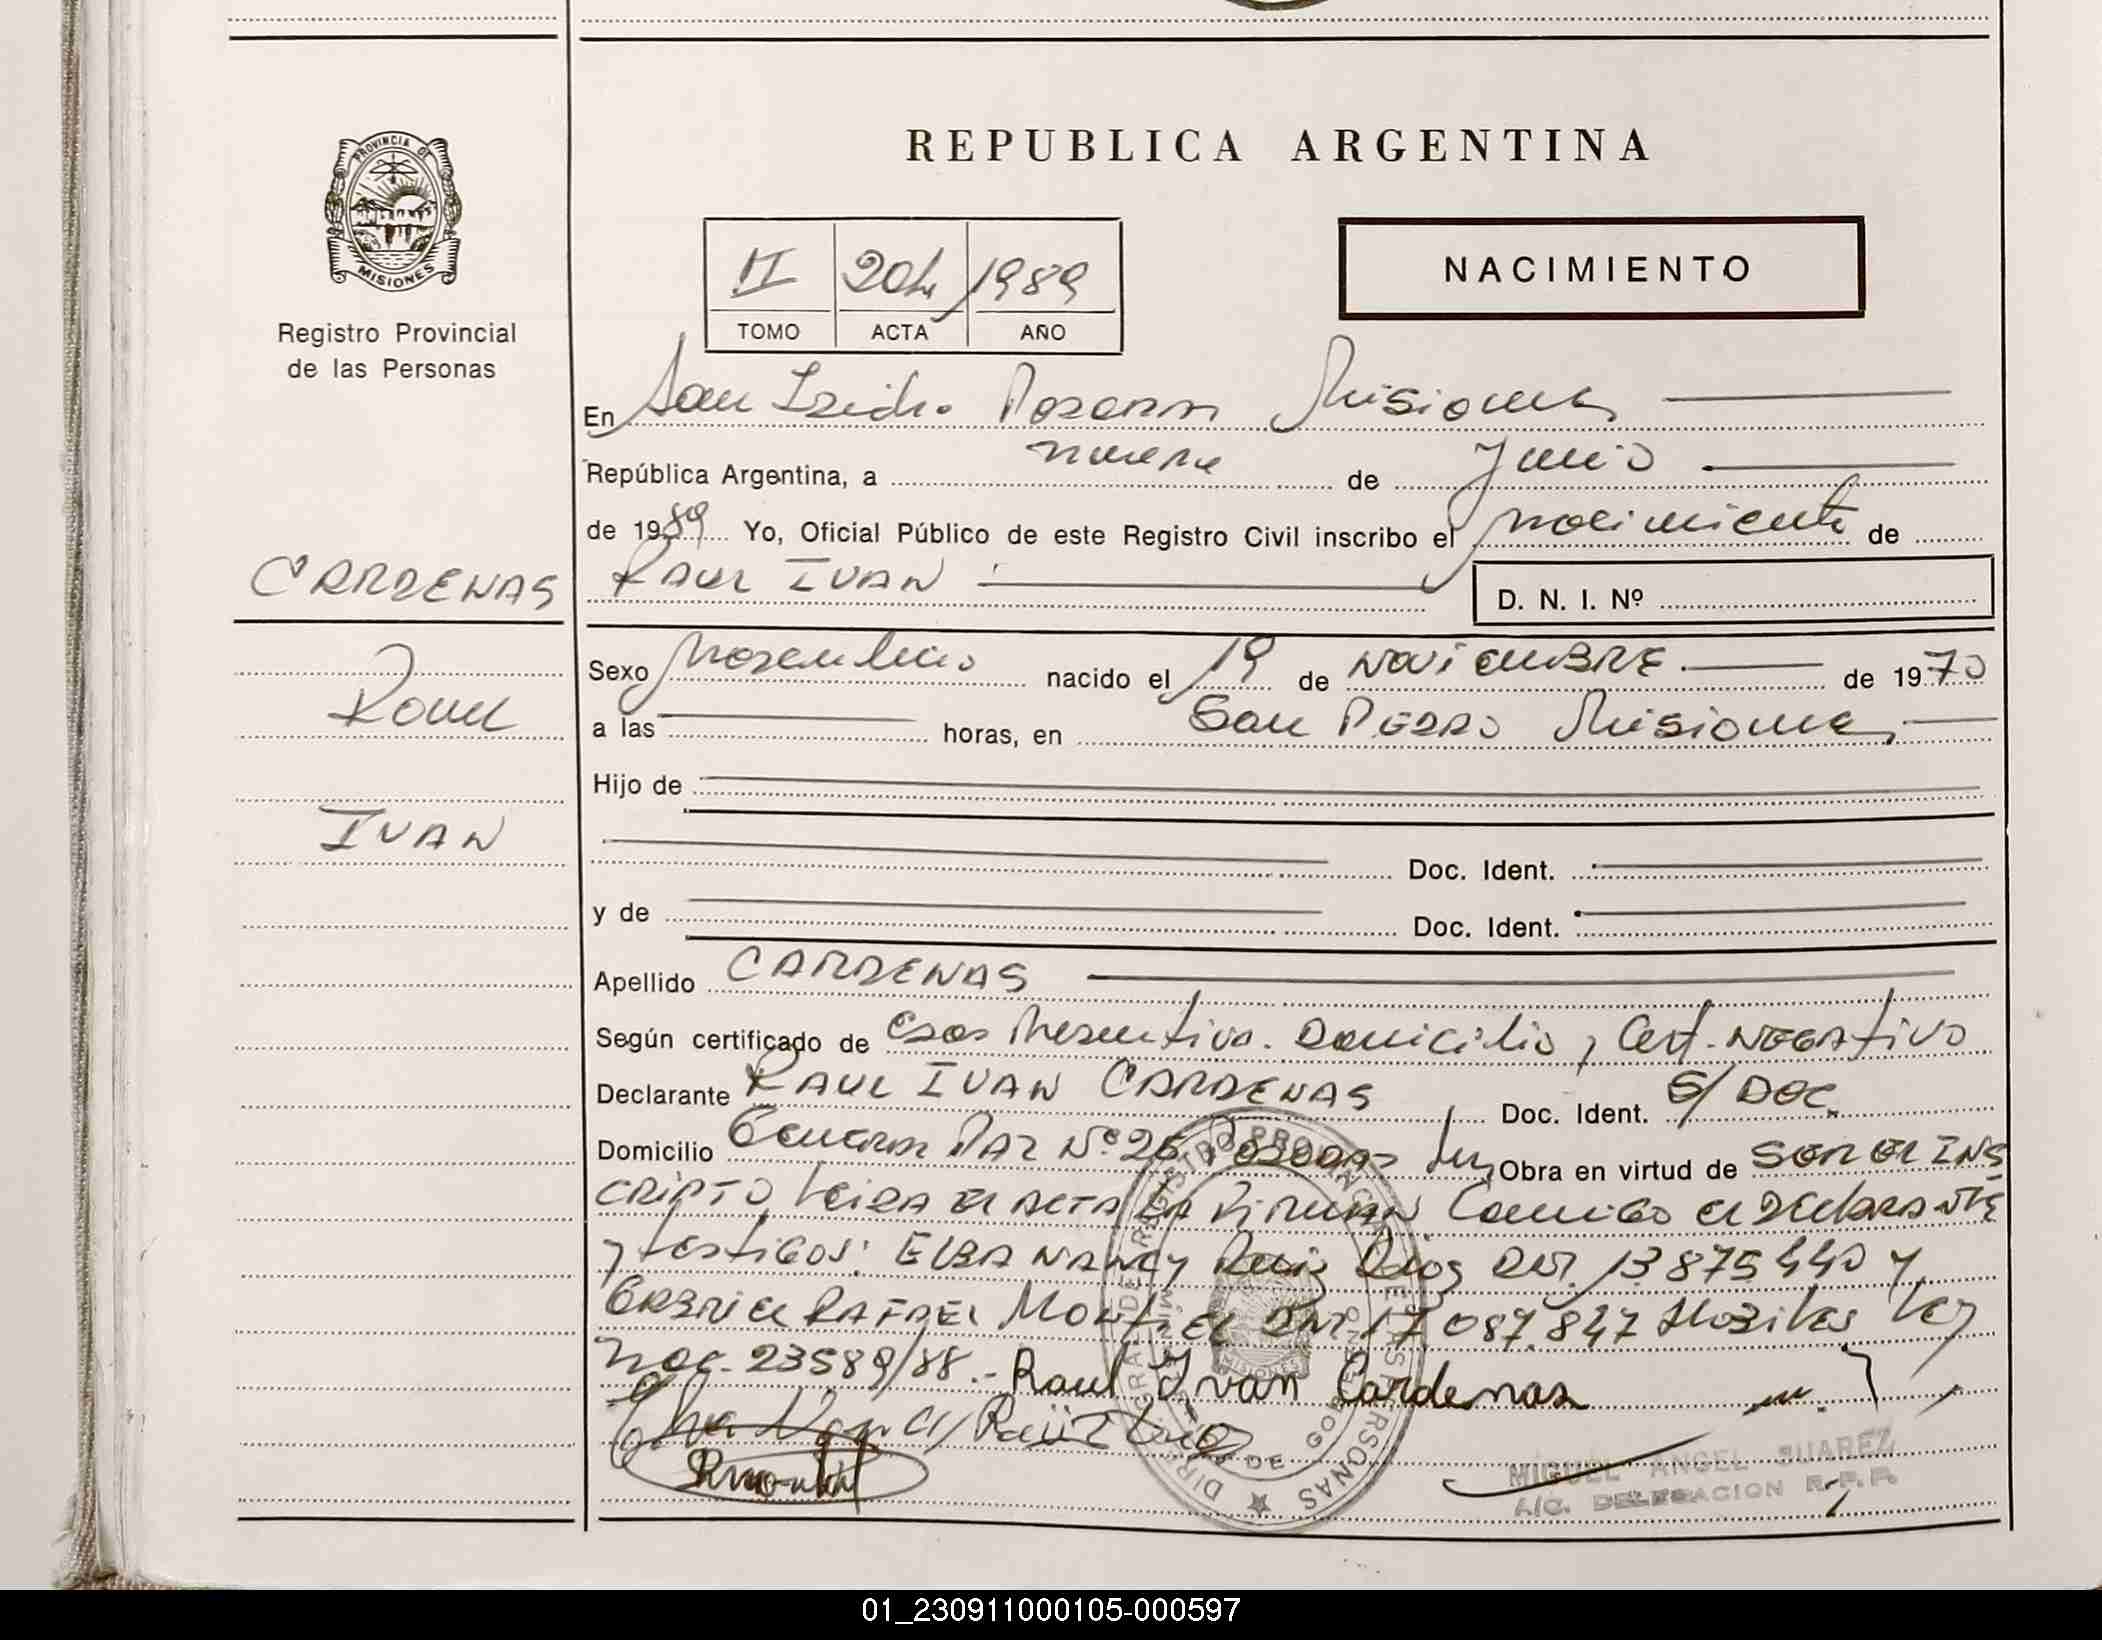 PROVINCIA DE
MISIONES
Registro Provincial
de las Personas
REPUBLICA ARGENTINA
II 204 1989
TOMO ACTA AÑO
NACIMIENTO
En San Isidro Posadas Misiones
República Argentina, a nueve de Junio
de 1989 Yo, Oficial Público de este Registro Civil inscribo el nacimiento de
CARDENAS RAUL IVAN
D. N. I. Nº
Raul
IVAN
Sexo Masculino nacido el 19 de NOVIEMBRE de 1970
a las horas, en San PEDRO Misiones
Hijo de
Doc. Ident.
y de Doc. Ident.
Apellido CARDENAS
Según certificado de Domicilio, Cert. NEGAtivo
Declarante RAUL IVAN CARDENAS Doc. Ident. S/ DOC.
Domicilio PAZ Nº 26 Posadas Obra en virtud de SER EL INS
CRIPTO, LEIDA EL ACTA LA FIRMAN Conmigo el DEClARANTE
y tEStiGOS: ELBA NANCY Ruiz Diaz DNI. 13875440 y
GABRIEL RAFAEL MONTIEL DNI 17 087.847 Hábiles Ley
Nac. 23589/88.- Raul Ivan Cardenas
MIGUEL ANGEL SUAREZ
A/C. DELEGACION R.P.P.
01_230911000105-000597